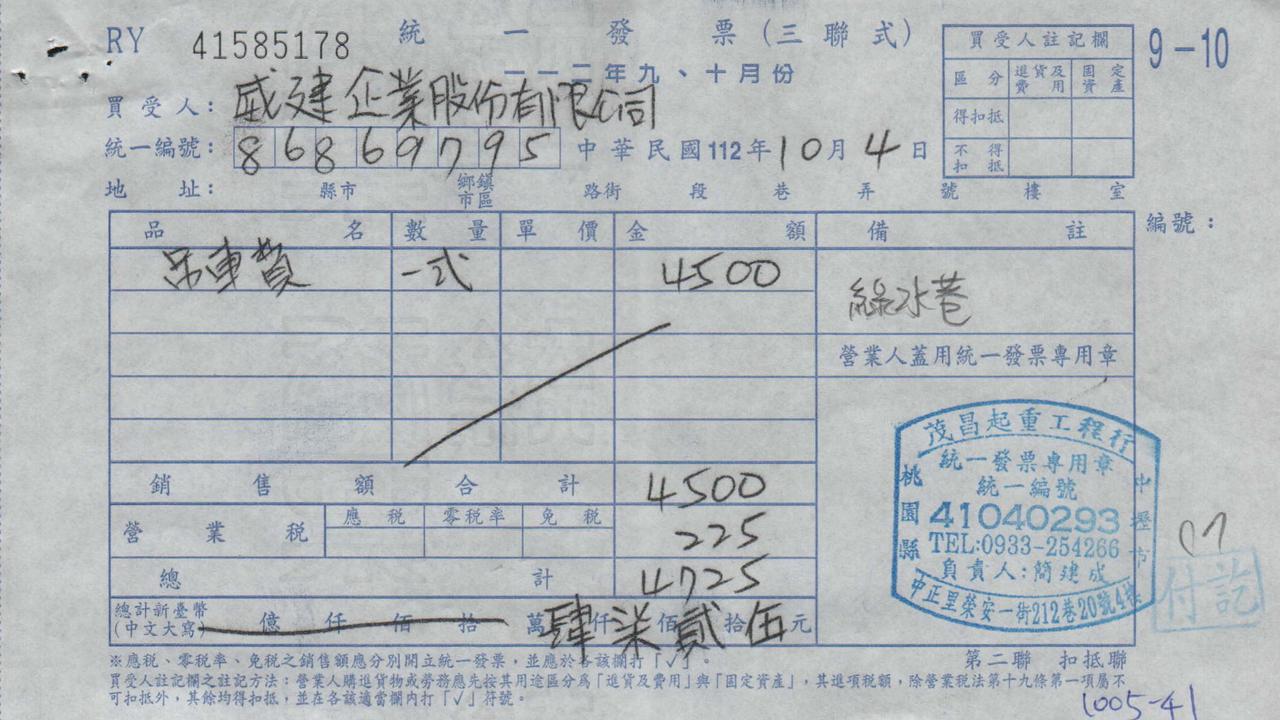 RY 41585178 統一發票(三聯式) 9-10
一一二年九、十月份
買受人: 威建企業股份有限公司
統一編號: 86869795 中華民國112年10月4日
地址: 縣市 鄉鎮市區 路街 段 巷 弄 號 樓 室
買受人註記欄
區分 進貨及費用 固定資產
得扣抵
不得扣抵
編號:
品名 數量 單價 金額 備註
吊車費 一式 4500 綠水巷
營業人蓋用統一發票專用章
銷售額合計 4500
營業稅 應稅 零稅率 免稅 225
總計 4725
總計新臺幣(中文大寫) 億仟佰拾萬肆仟柒佰貳拾伍元
茂昌起重工程行
統一發票專用章
統一編號
41040293
TEL:0933-254266
負責人:簡建成
桃園縣 中壢市
中正里榮安一街212巷20號4樓
付訖
※應稅、零稅率、免稅之銷售額應分別開立統一發票,並應於各該欄打「✓」。
第二聯 扣抵聯
買受人註記欄之註記方法:營業人購進貨物或勞務應先按其用途區分為「進貨及費用」與「固定資產」,其進項稅額,除營業稅法第十九條第一項屬不
可扣抵外,其餘均得扣抵,並在各該適當欄內打「✓」符號。
1005-41